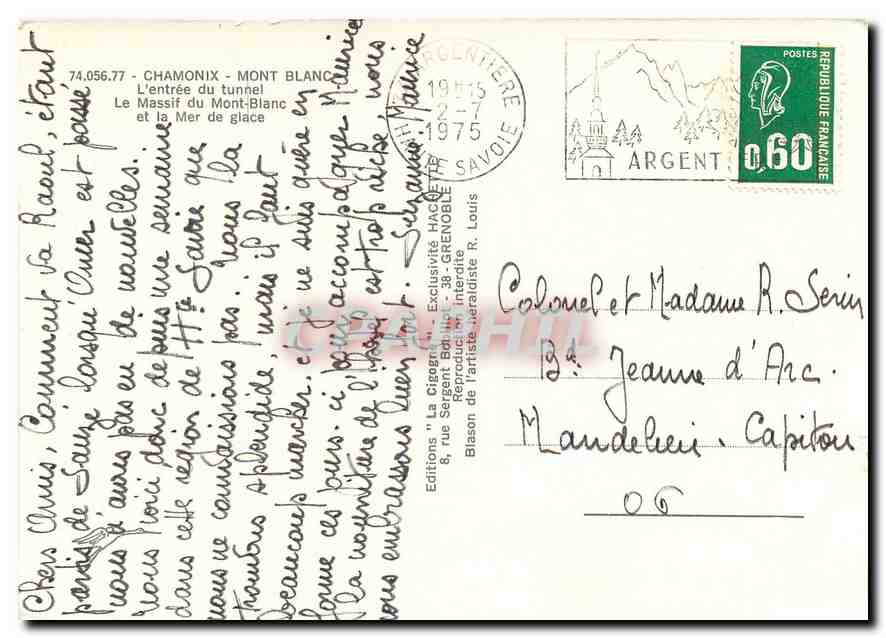 74.056.77 - CHAMONIX - MONT BLANC
L'entrée du tunnel
Le Massif du Mont-Blanc
et la Mer de glace
Chers Amis, Comment va Raoul, étant
partis de Sauze lorsqu'Omer est passé
nous n'avons pas eu de nouvelles.
Nous voici donc depuis une semaine
dans cette région de Hte Savoie que
nous ne connaissions pas. Nous la
trouvons splendide, mais il faut
beaucoup marcher, et je ne suis guère en
forme ces jours-ci pour accompagner Maurice
la nourriture de l'hôtel est trop riche. Nous
vous embrassons bien fort. Suzanne Maurice
Editions "La Cigogne" - Exclusivité HACHETTE
8, rue Sergent Bobillot - 38 - GRENOBLE
Reproduction interdite
Blason de l'artiste héraldiste R. Louis
ARGENTIERE
19H15
2-7
1975
HTE SAVOIE
ARGENT
POSTES
REPUBLIQUE FRANÇAISE
0,60
Colonel et Madame R. Serin
Bd Jeanne d'Arc.
Mandelieu. Capitou
06
CPAPHIL